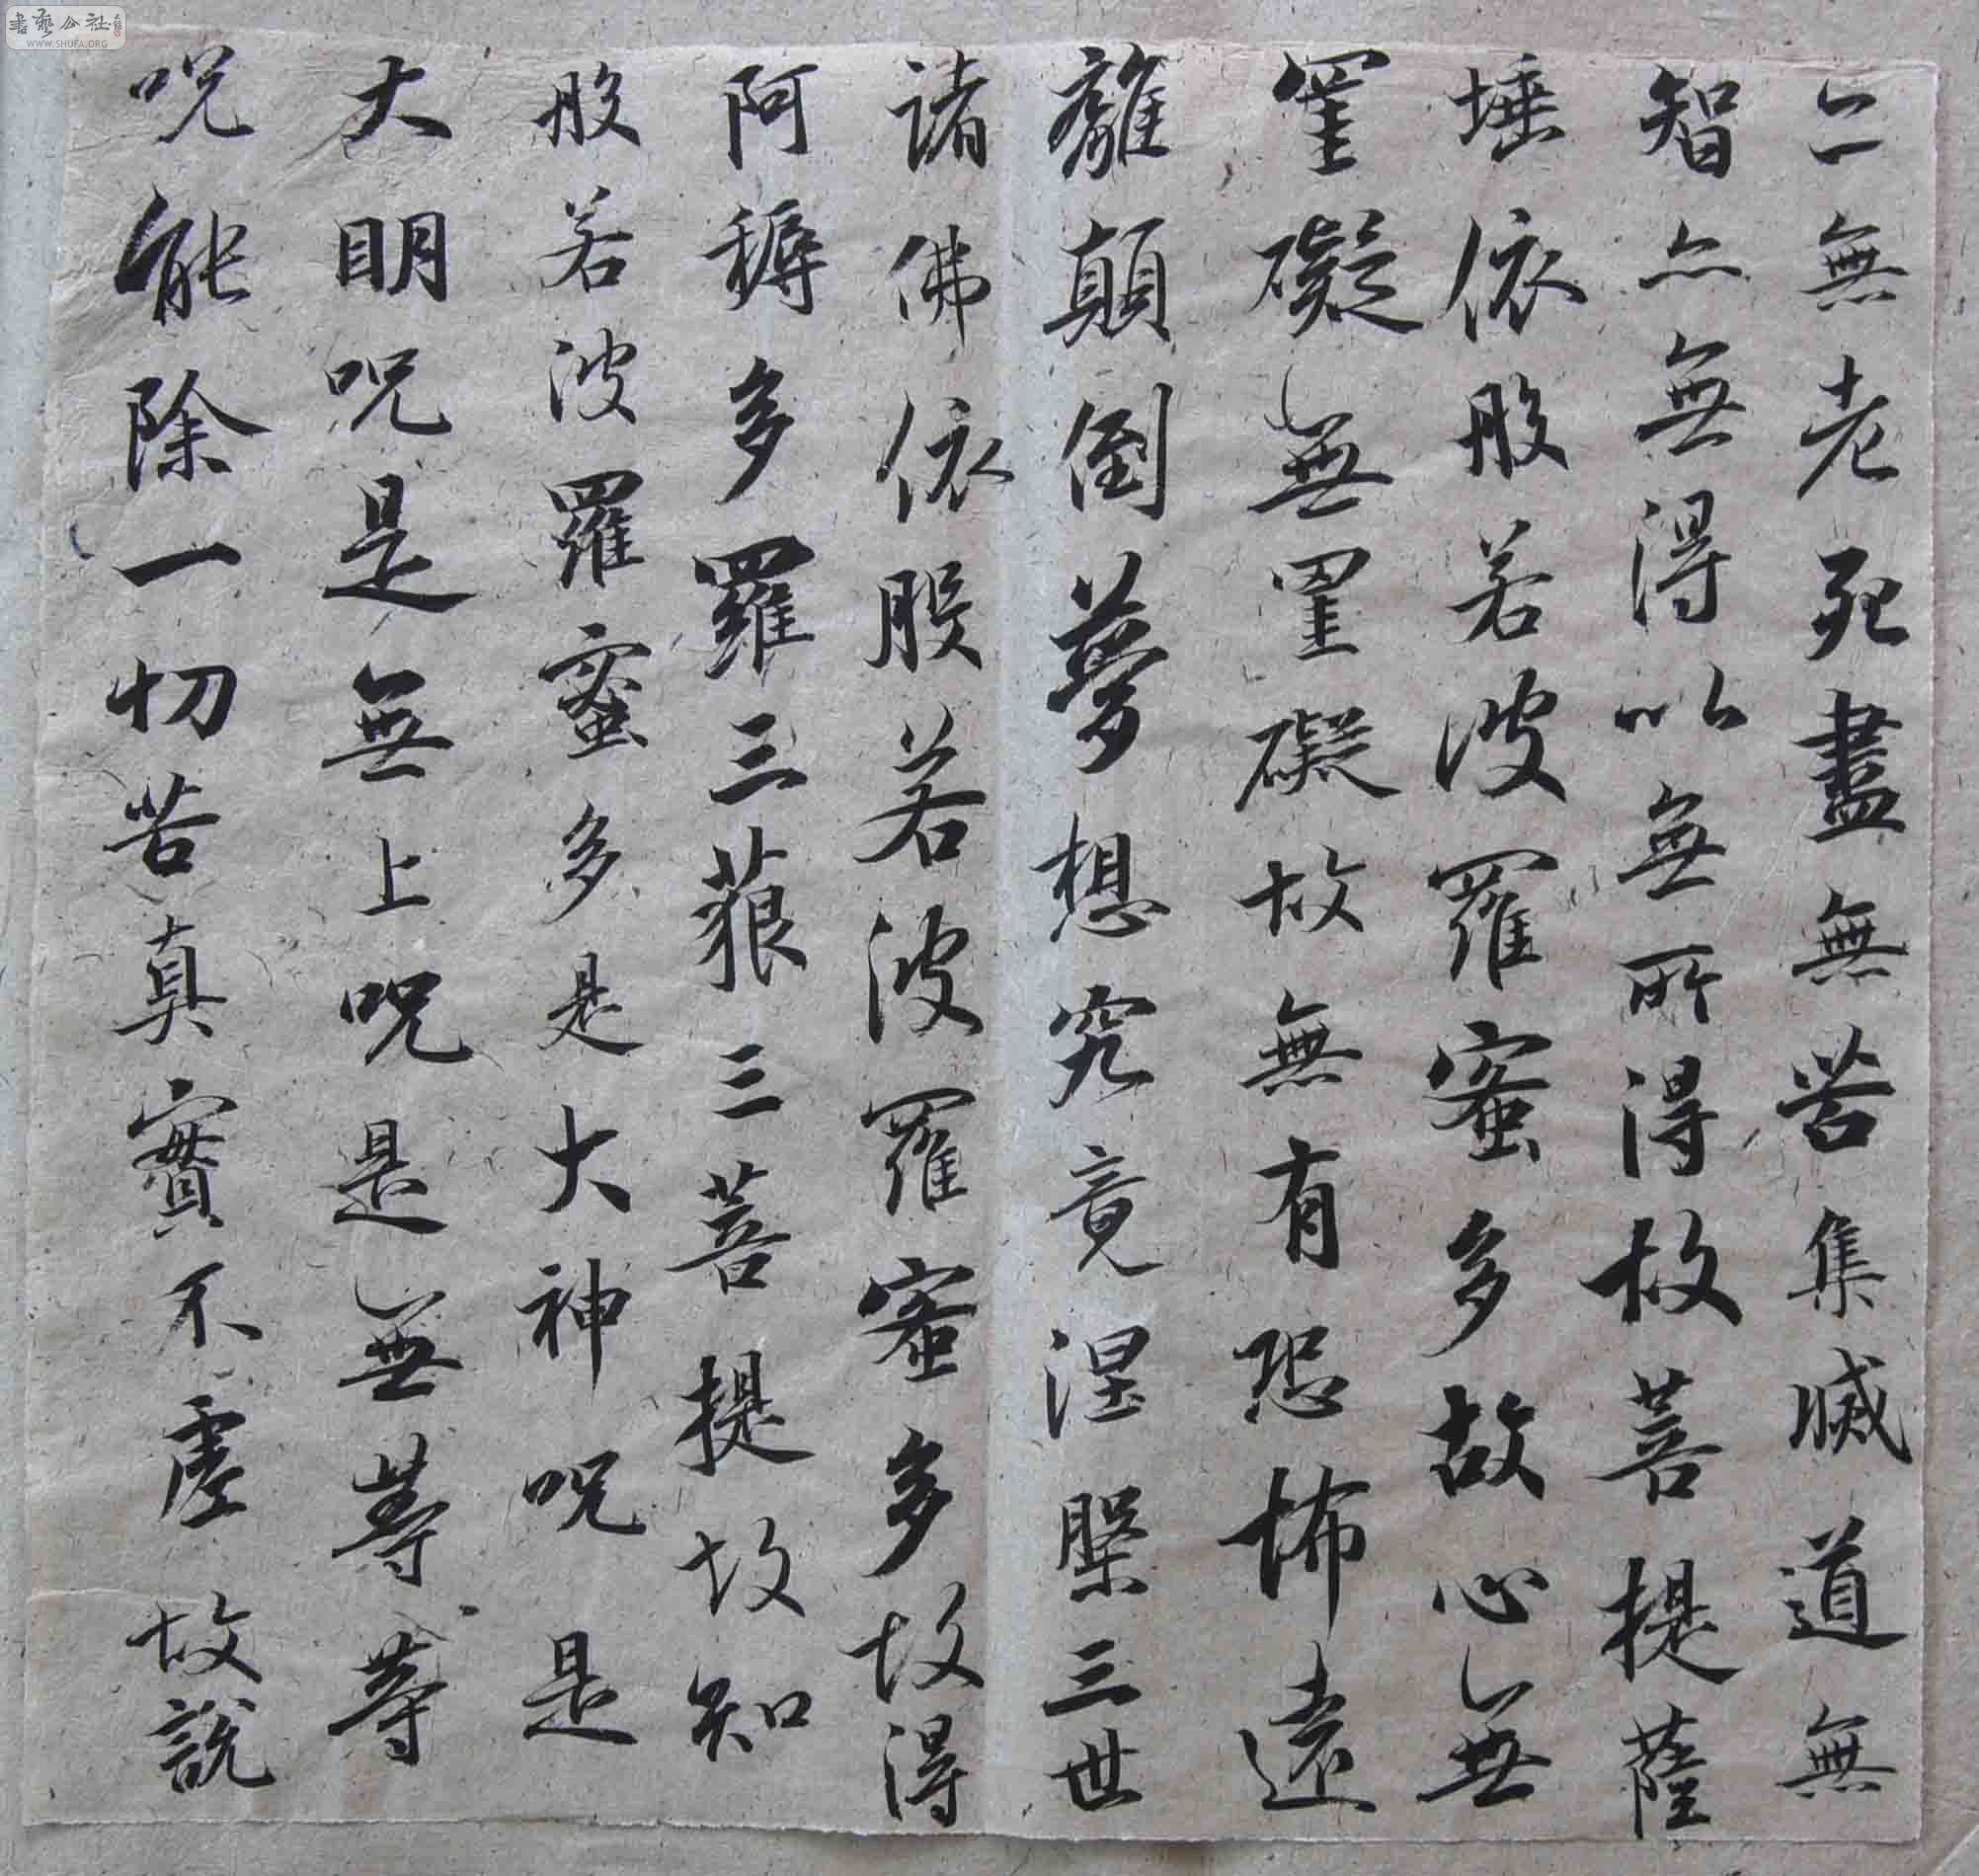 亦無老死盡無苦集滅道無
智亦無得以無所得故菩提薩
埵依般若波羅蜜多故心無
罣礙無罣礙故無有恐怖遠
離顛倒夢想究竟涅槃三世
諸佛依般若波羅蜜多故得
阿耨多羅三藐三菩提故知
般若波羅蜜多是大神呪是
大明呪是無上呪是無等等
呪能除一切苦真實不虛故說
書藝公社
WWW.SHUFA.ORG